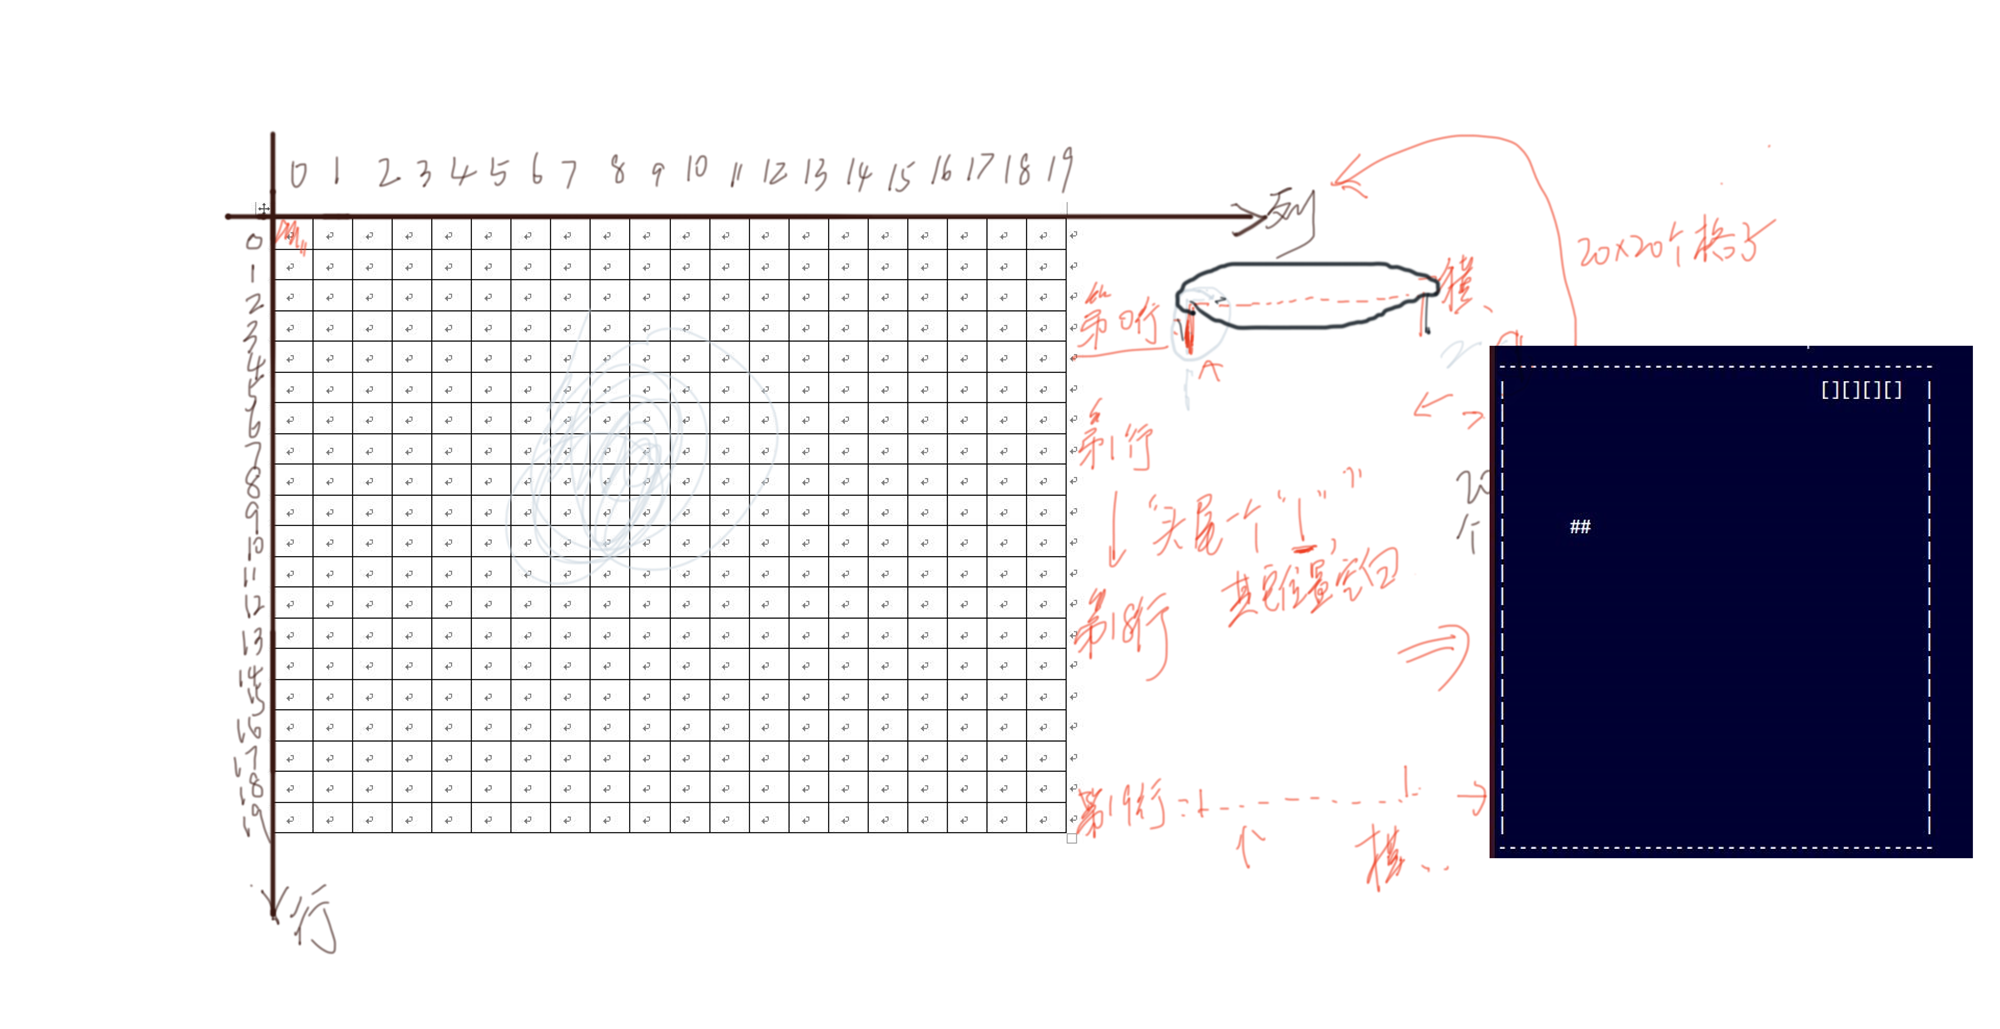 0 1 2 3 4 5 6 7 8 9 10 11 12 13 14 15 16 17 18 19
列
0
1
2
3
4
5
6
7
8
9
10
11
12
13
14
15
16
17
18
19
行
20×20个格子
第0行
横、
第1行
"头尾一个"|","
其它位置空白
第18行
第19行:
横、、
20
个
------------------------------------------
| [][][][] |
##
------------------------------------------